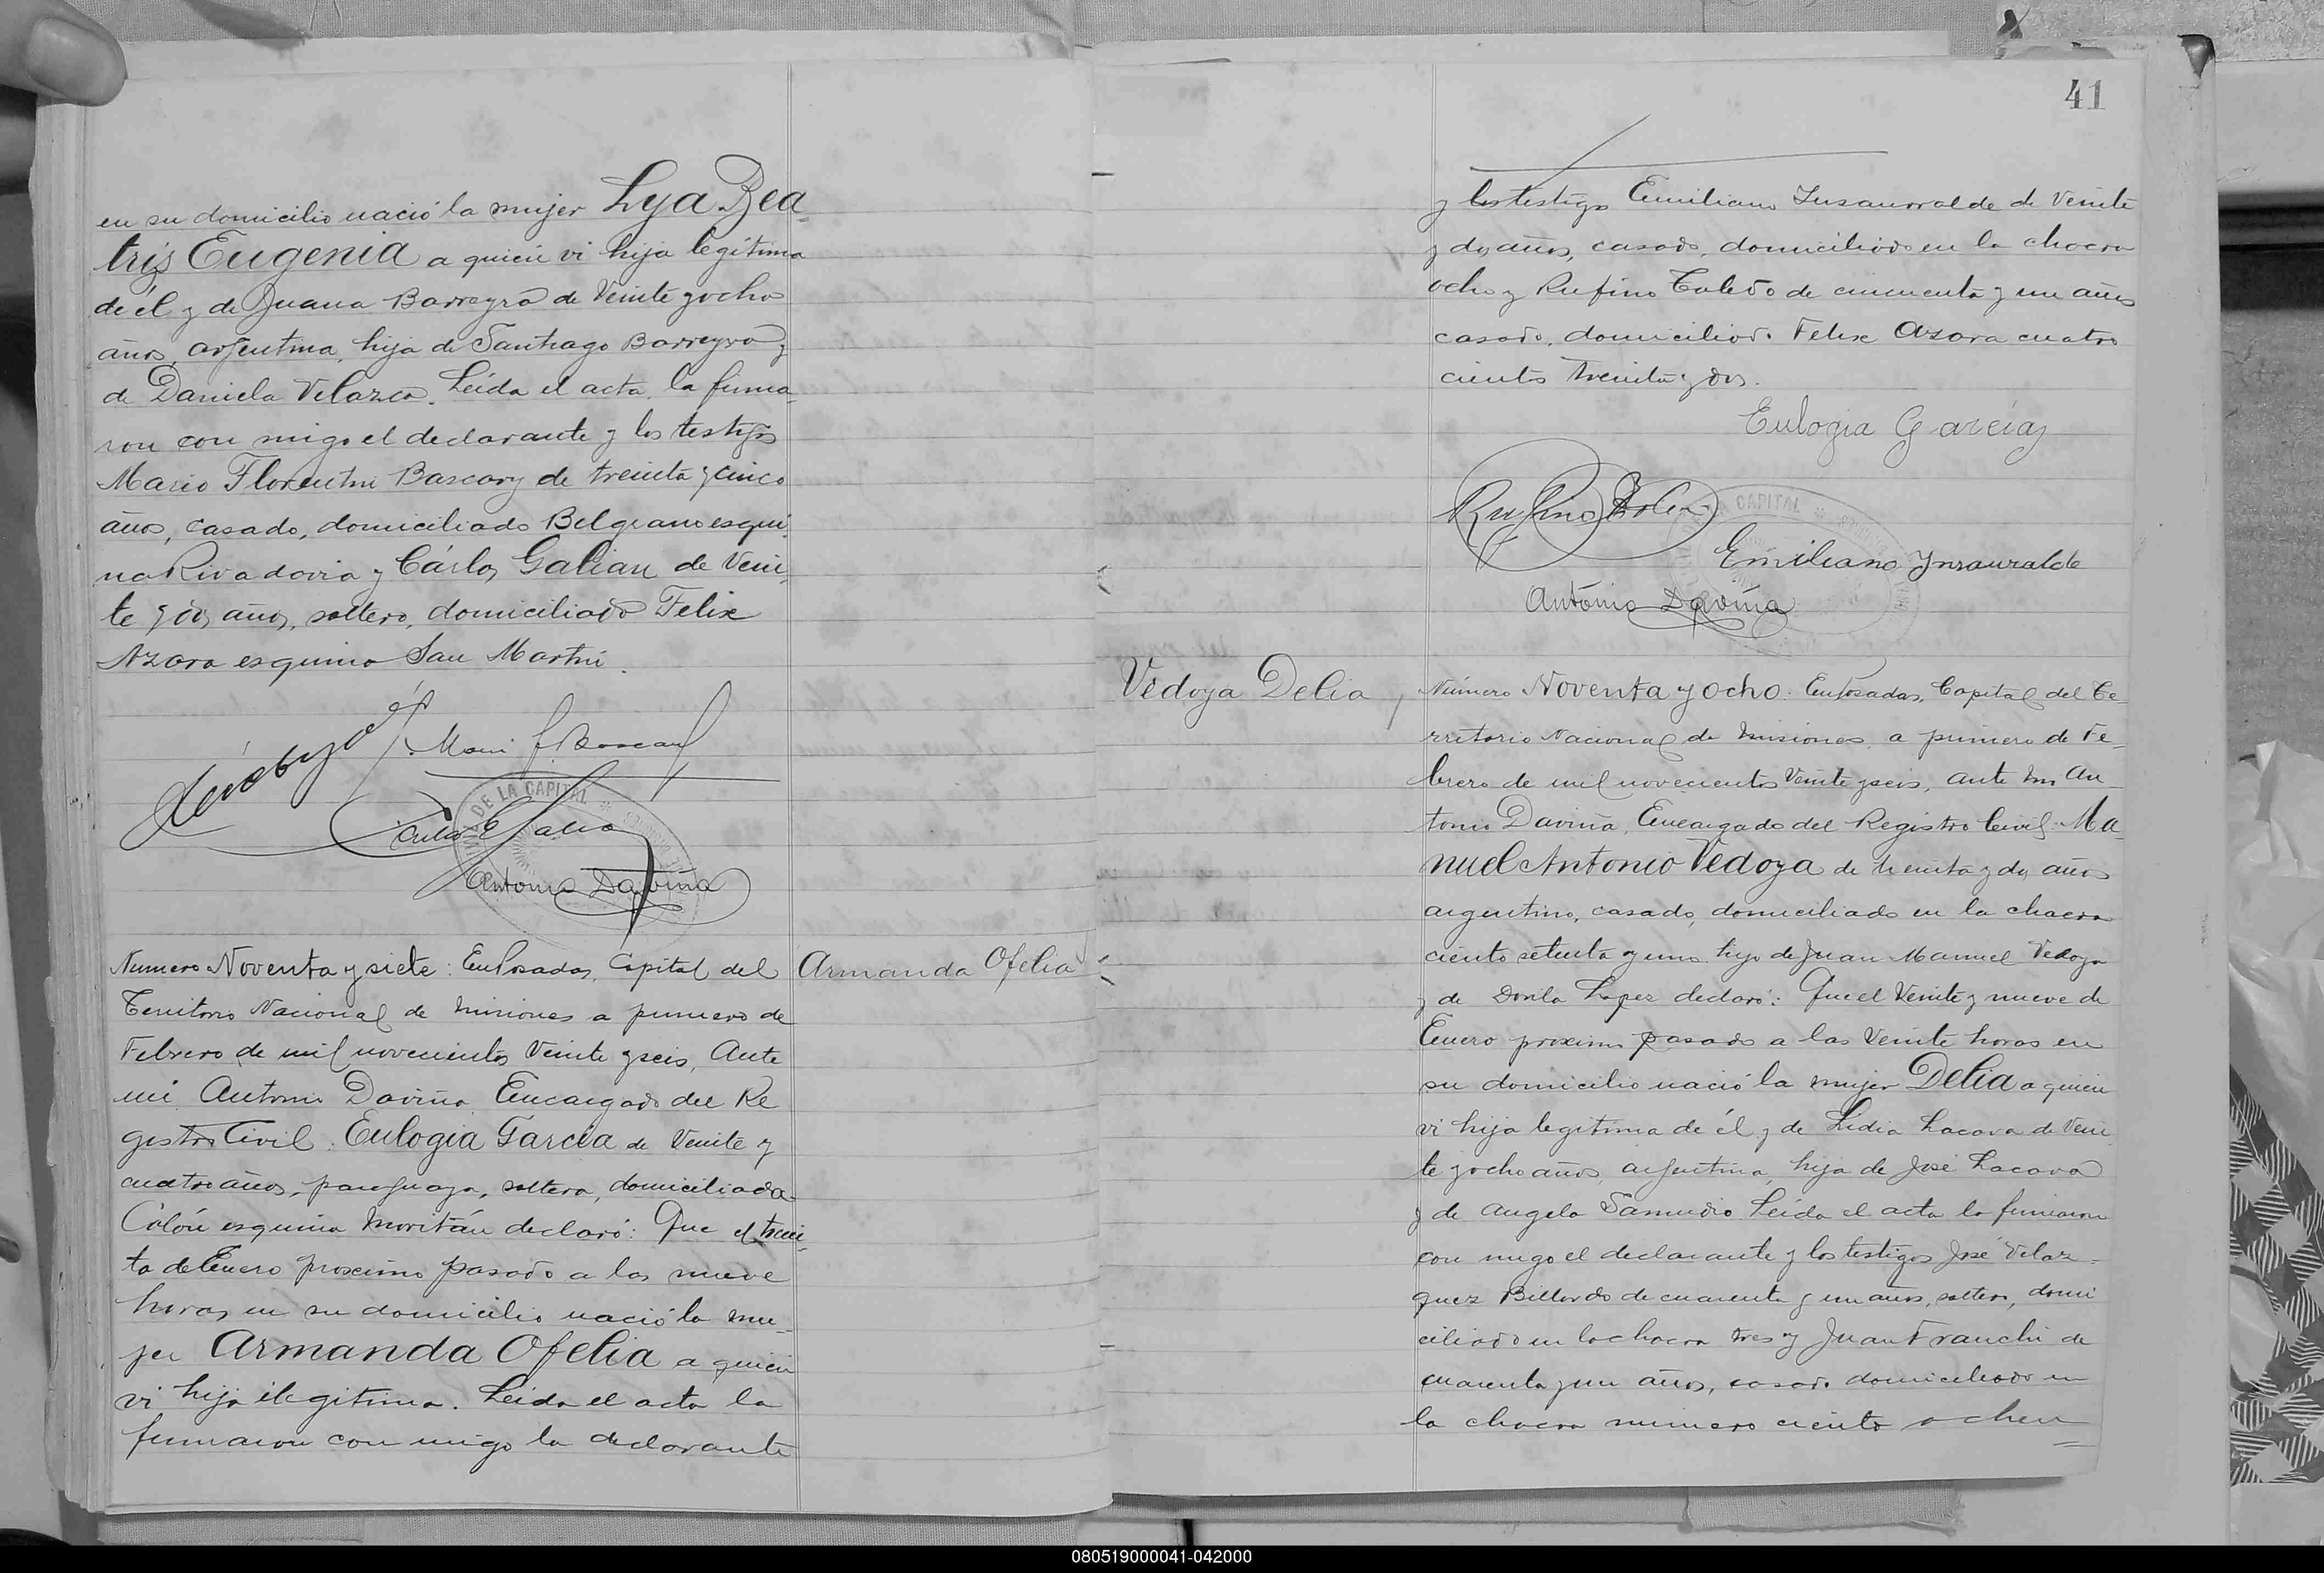 en su domicilio nació la mujer Lya Bea-
triz Eugenia a quien vi hija legítima
de él y de Juana Barreyro de Veinte y ocho
años, argentina, hija de Santiago Barreyro y
de Daniela Velazco. Leída el acta, la firma-
ron con migo el declarante y los testigos
Mario Florentin Bascary de treinta y cinco
años, casado, domiciliado Belgrano esqui-
na Rivadavia y Cárlos Galian de Vein-
te y dos años, soltero, domiciliado Felix
Azara esquina San Martin.
Antonio Daviña
Numero Noventa y siete: En Posadas, Capital del
Territorio Nacional de Misiones a primero de
Febrero de mil novecientos Veinte y seis, Ante
mi Antonio Daviña Encargado del Re
gistro Civil: Eulogia Garcia de Veinte y
cuatro años, paraguaya, soltera, domiciliada
Colón esquina Moritán declaró: Que el trein-
ta de Enero proximo pasado a las nueve
horas, en su domicilio nació la mu-
jer Armanda Ofelia a quien
vi hija ilegitima. Leida el acta la
firmaron con migo la declarante
Armanda Ofelia
41
y los testigos Emiliano Insaurralde de Veinte
y dos años, casado, domiciliado en la chacra
ocho y Rufino Toledo de cincuenta y un años
casado, domiciliado Felix Azara cuatro
ciento treinta y dos.
Eulogia Garcia
Emiliano Ynsauralde
Antonio Daviña
Vedoya Delia
Número Noventa y ocho: En Posadas, Capital del Te
rritorio Nacional de Misiones, a primero de Fe-
brero de mil novecientos Veinte y seis, ante mi An
tonio Daviña, Encargado del Registro Civil: Ma
nuel Antonio Vedoya de treinta y dos años
argentino, casado, domiciliado en la chacra
ciento setenta y uno hijo de Juan Manuel Vedoya
y de Dorila Lopez declaró: Que el Veinte y nueve de
Enero proximo pasado a las Veinte horas en
su domicilio nació la mujer Delia a quien
vi hija legitima de él y de Lidia Lacava de Vein
te y ocho años, argentina, hija de José Lacava
y de Angela Samudio. Leída el acta la firmaron
con migo el declarante y los testigos José Velaz-
quez Billordo de cuarenta y un años, soltero, domi
ciliado en la chacra tres y Juan Franchi de
cuarenta y un años, casado domiciliado en
la chacra numero ciento ochen
080519000041-042000